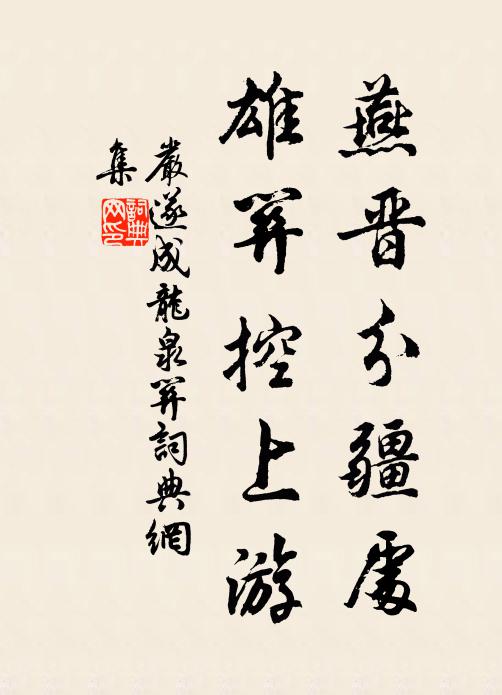 燕晉分疆處
雄關控上游
嚴遂成龍泉關詞典網
集
詞典
网印